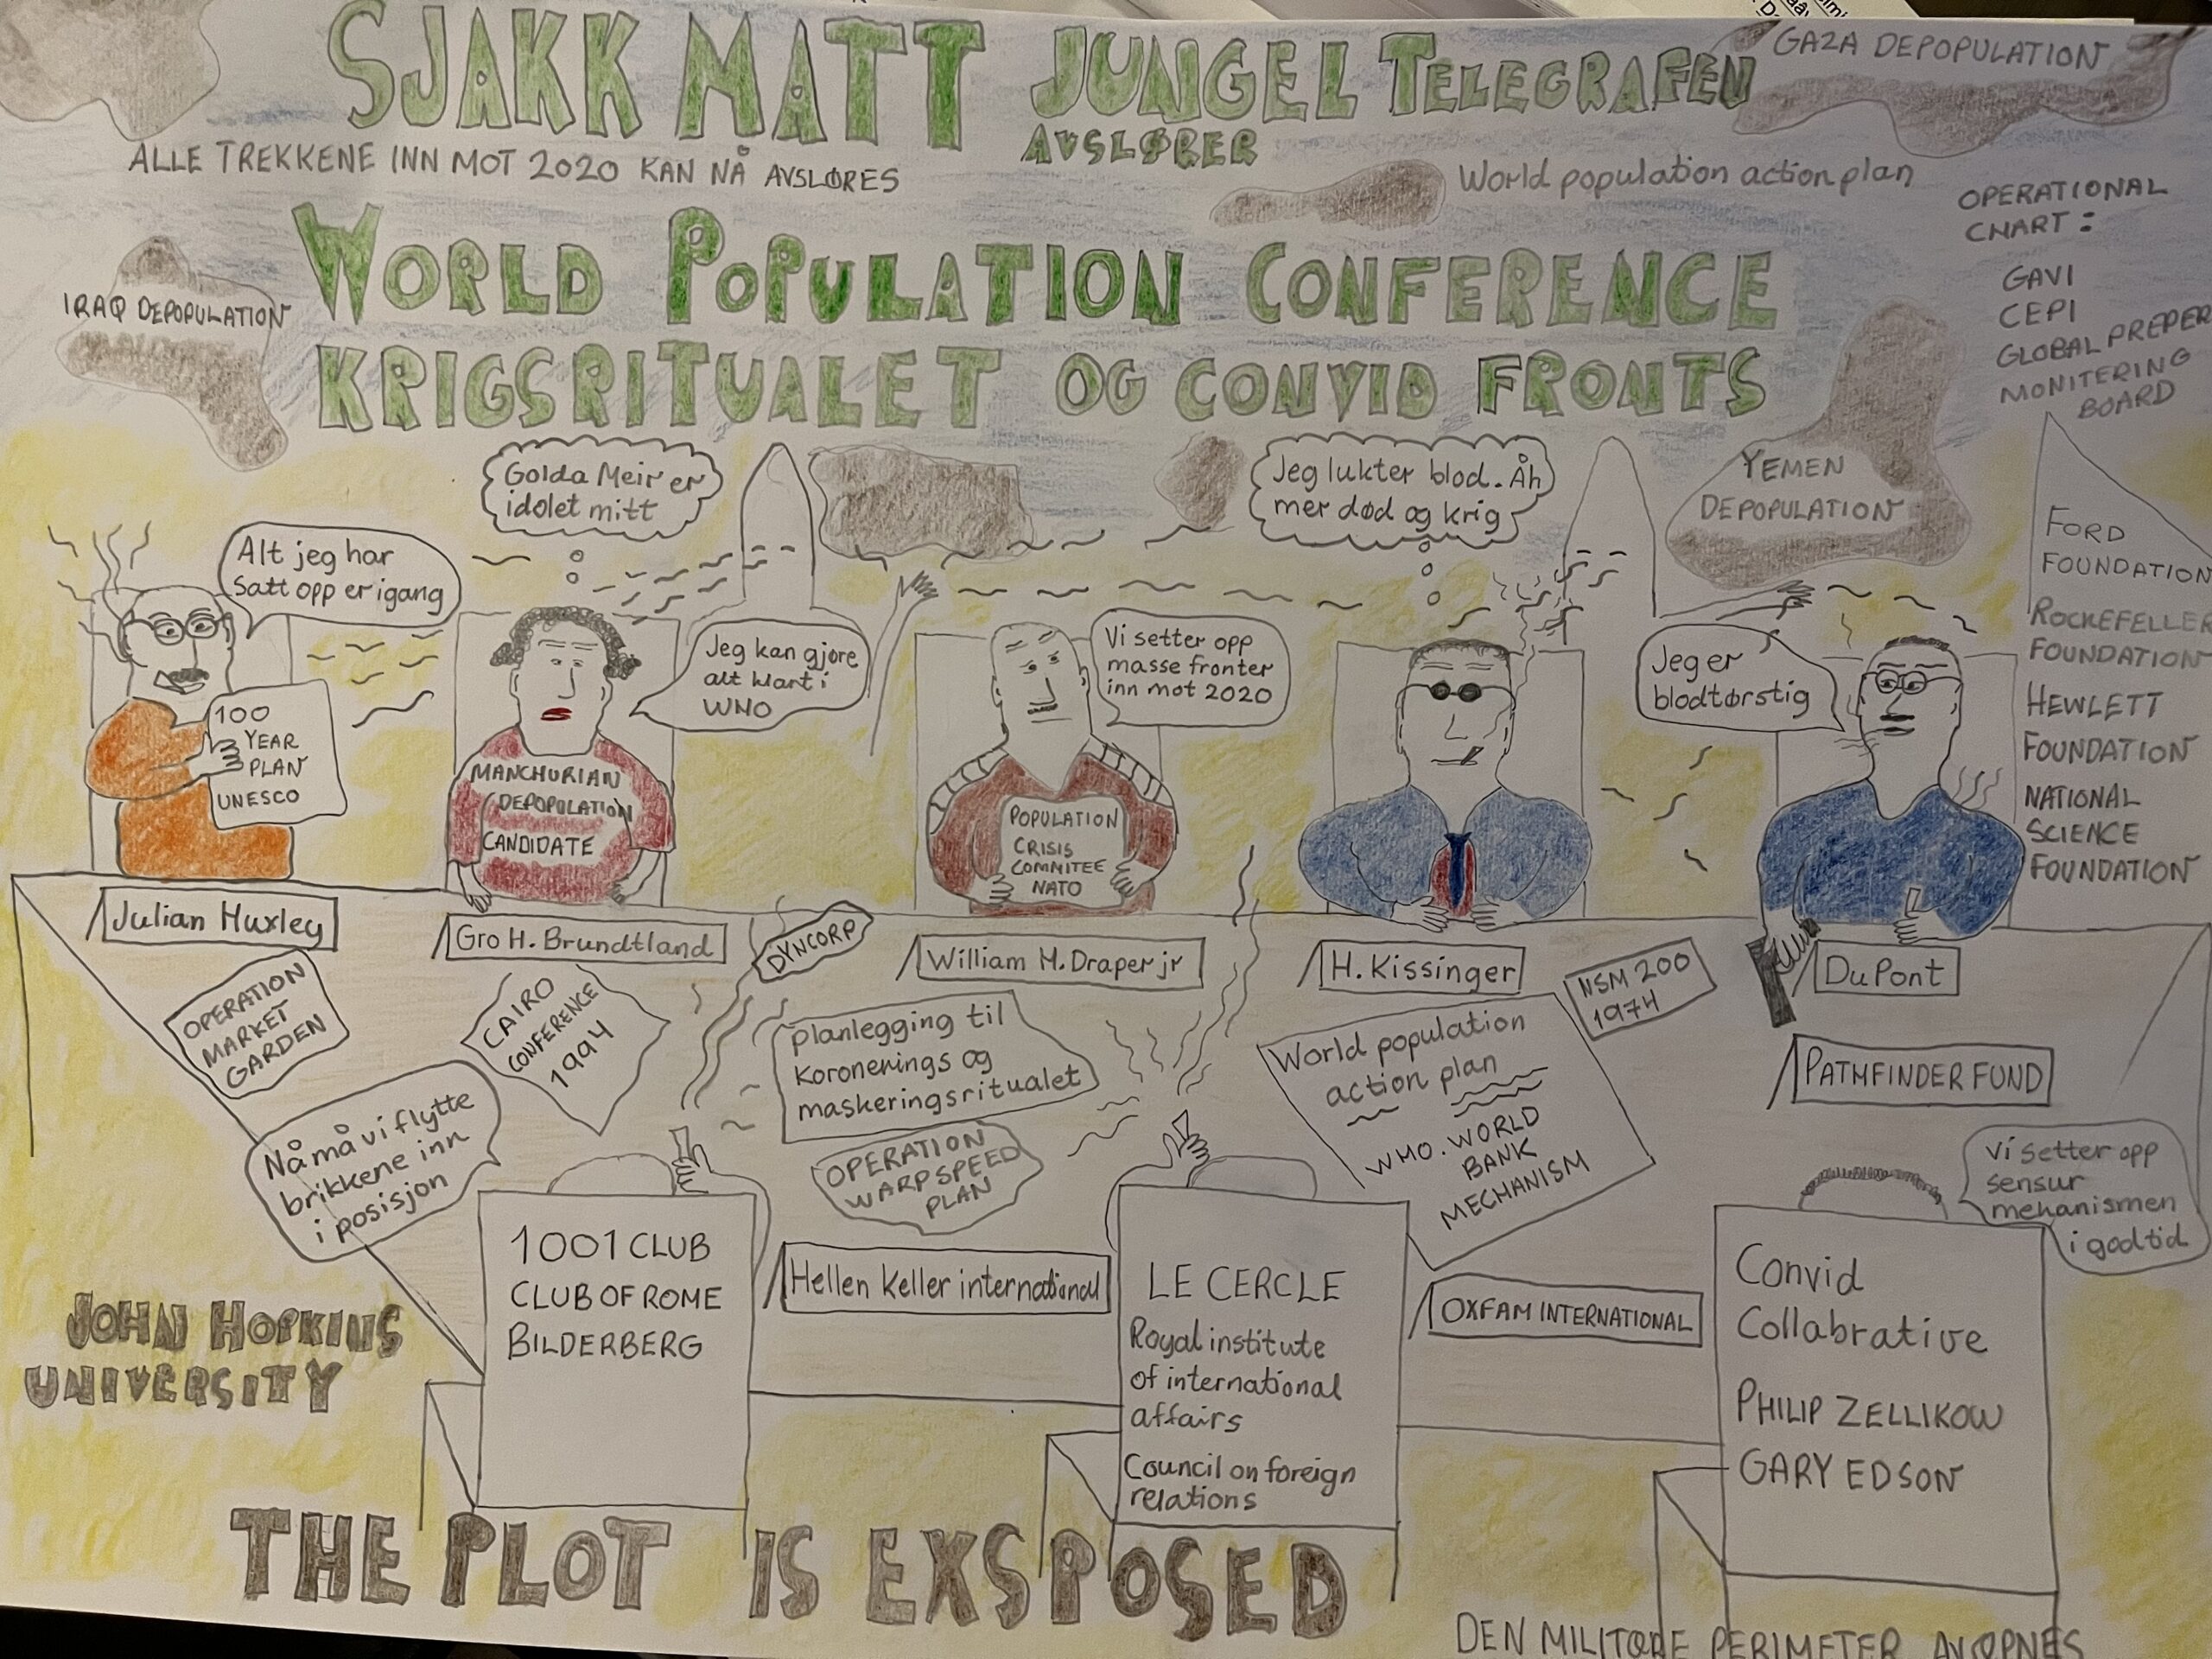 SJAKK MATT JUNGEL TELEGRAFEN
AVSLØRER
GAZA DEPOPULATION
ALLE TREKKENE INN MOT 2020 KAN NÅ AVSLØRES
World population action plan
OPERATIONAL
CHART :
GAVI
CEPI
GLOBAL PREPER
MONITERING
BOARD
WORLD POPULATION CONFERENCE
KRIGSRITUALET OG CONVID FRONTS
IRAQ DEPOPULATION
YEMEN
DEPOPULATION
FORD
FOUNDATION
ROCKEFELLER
FOUNDATION
HEWLETT
FOUNDATION
NATIONAL
SCIENCE
FOUNDATION
Alt jeg har
satt opp er igang
Golda Meir er
idolet mitt
Jeg kan gjøre
alt klart i
WHO
Vi setter opp
masse fronter
inn mot 2020
Jeg lukter blod. Åh
mer død og krig
Jeg er
blodtørstig
100
YEAR
PLAN
UNESCO
MANCHURIAN
DEPOPULATION
CANDIDATE
POPULATION
CRISIS
COMMITEE
NATO
Julian Huxley
Gro H. Brundtland
DYNCORP
William H. Draper jr
H. Kissinger
NSM 200
1974
DuPont
OPERATION
MARKET
GARDEN
CAIRO
CONFERENCE
1994
planlegging til
koronerings og
maskeringsritualet
World population
action plan
WHO. WORLD
BANK
MECHANISM
PATHFINDER FUND
Nå må vi flytte
brikkene inn
i posisjon
OPERATION
WARPSPEED
PLAN
Vi setter opp
sensur
mekanismen
i god tid
1001 CLUB
CLUB OF ROME
BILDERBERG
Hellen Keller international
LE CERCLE
Royal institute
of international
affairs
Council on foreign
relations
OXFAM INTERNATIONAL
Convid
Collabrative
PHILIP ZELLIKOW
GARY EDSON
JOHN HOPKINS
UNIVERSITY
THE PLOT IS EXSPOSED
DEN MILITÆRE PERIMETER AVÆPNES